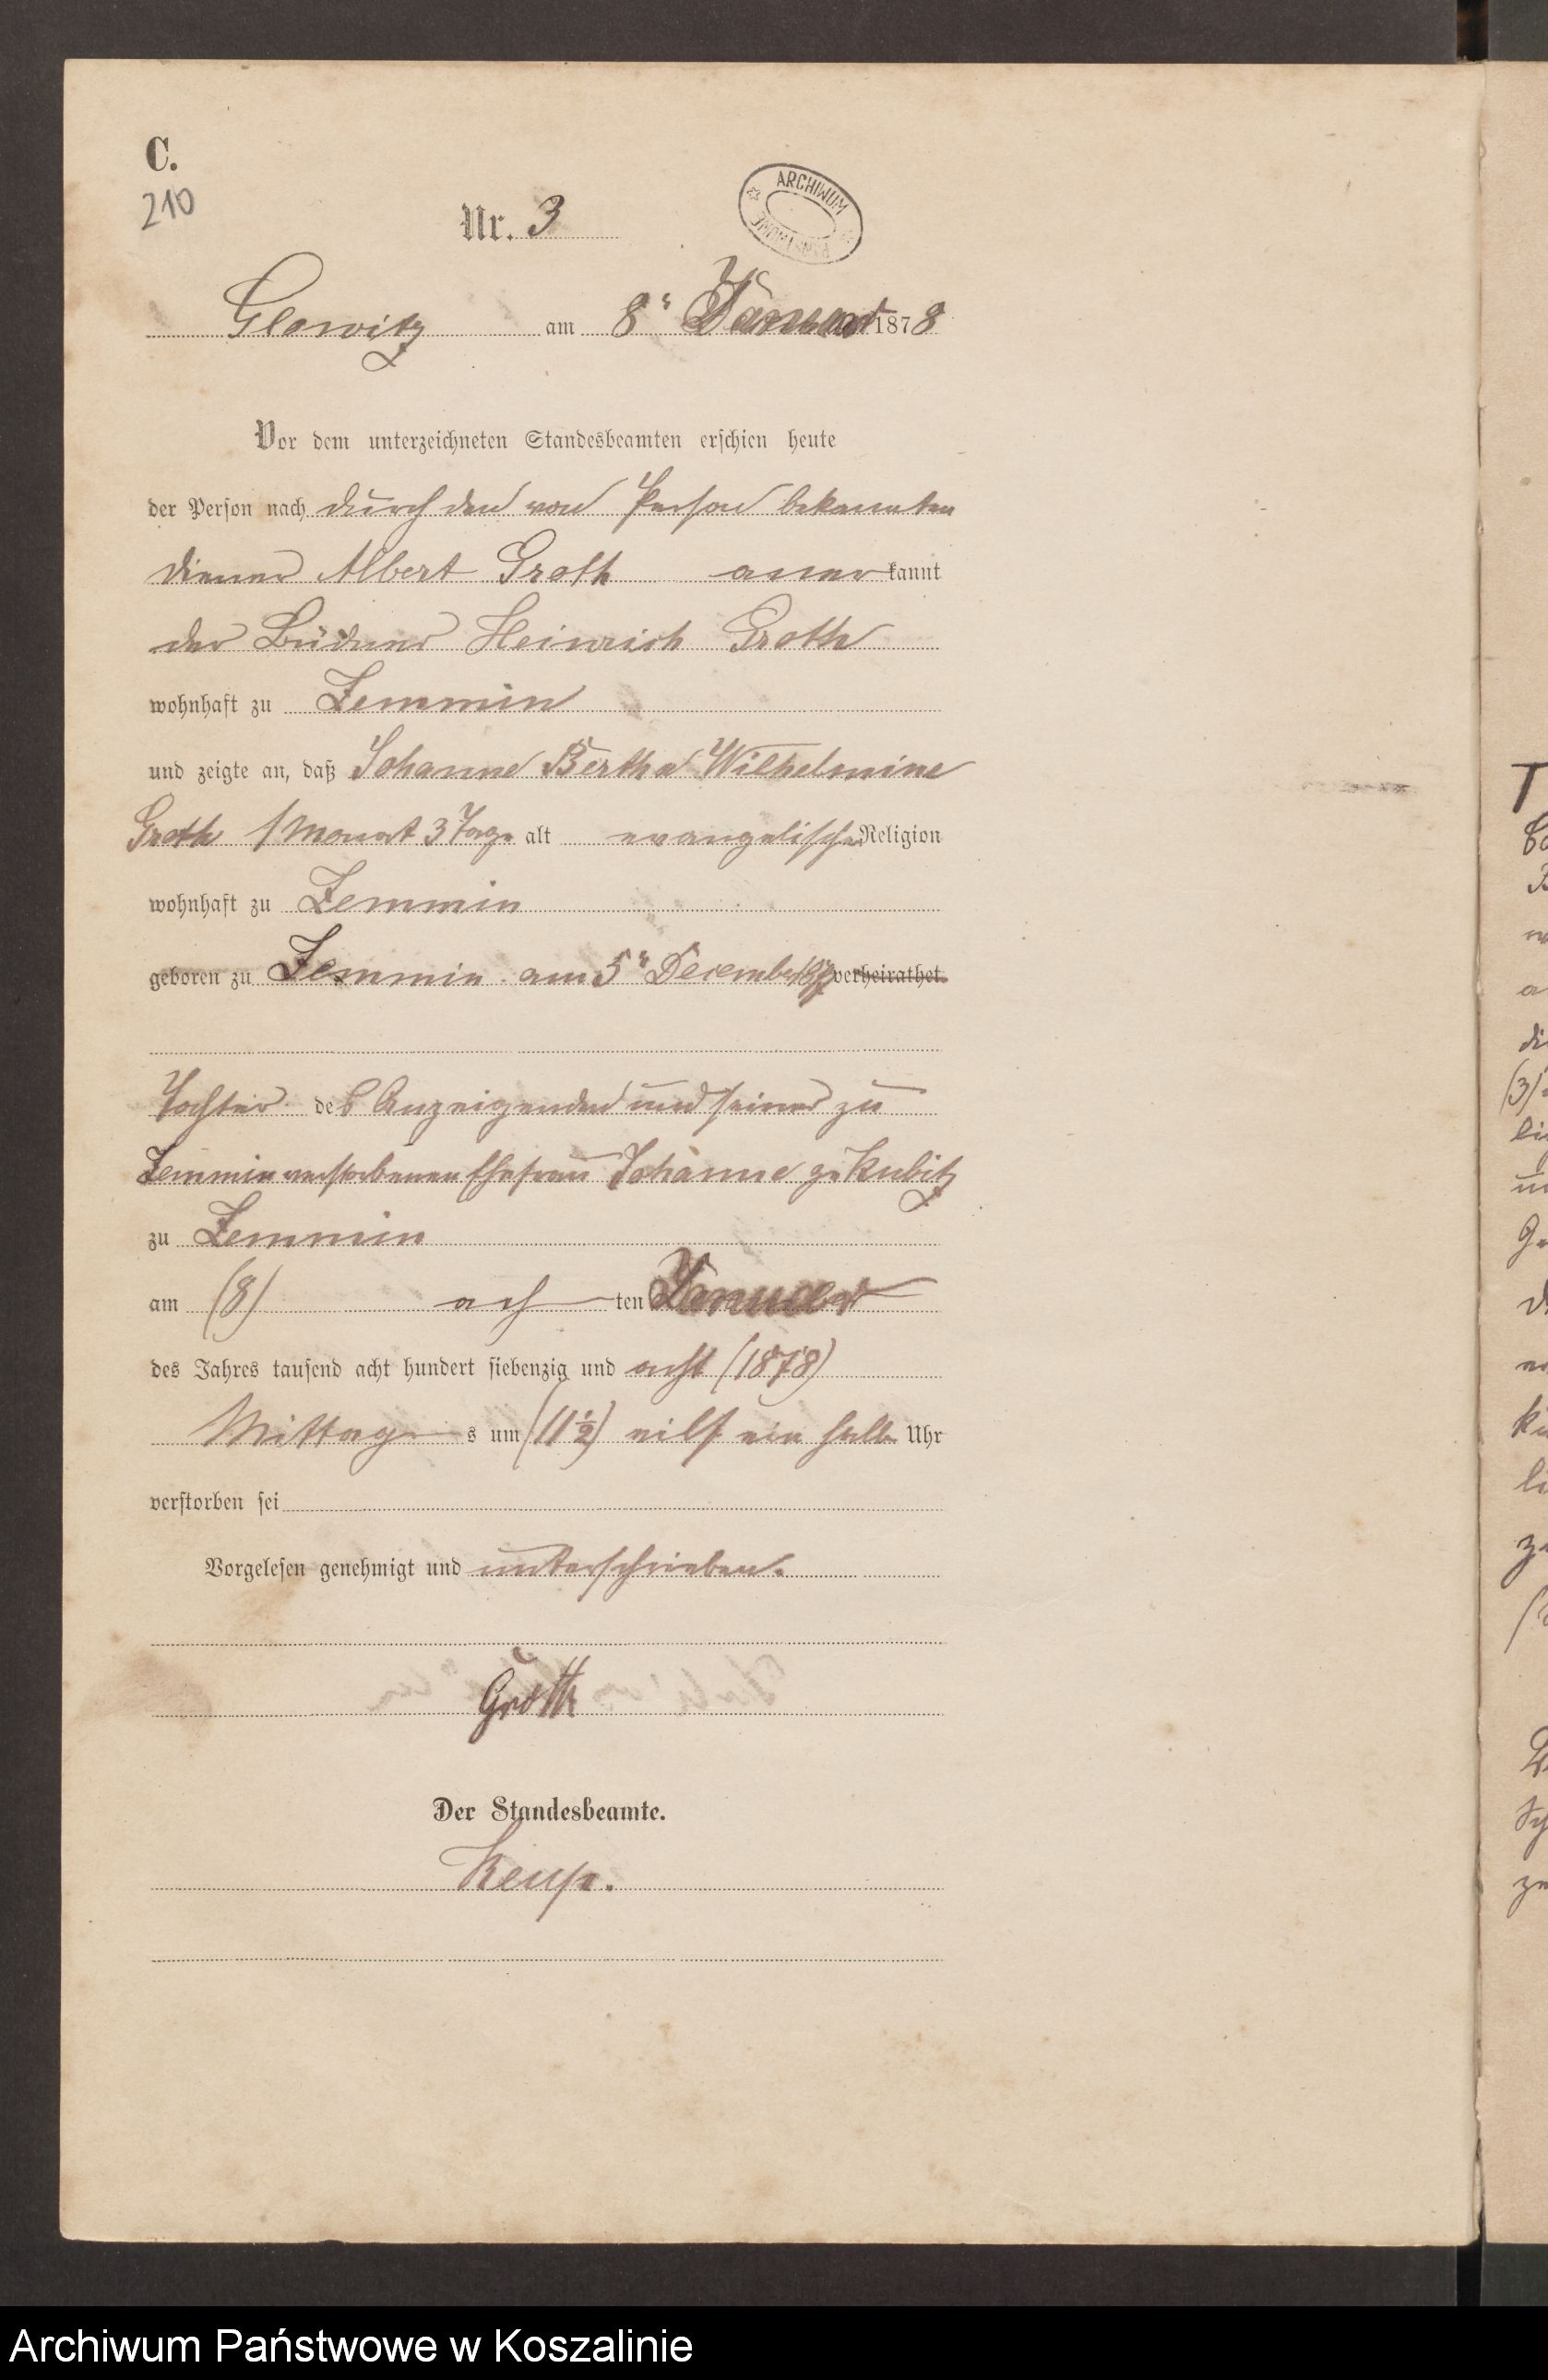 C.
210
Nr. 3
ARCHIWUM
Glowitz am 8ͭ Januar 1878
Vor dem unterzeichneten Standesbeamten erschien heute
der Person nach durch den von Person bekannten
Diener Albert Groth anerkannt
der Büdner Heinrich Groth
wohnhaft zu Zemmin
und zeigte an, daß Johanne Bertha Wilhelmine
Groth 1 Monat 3 Tage alt evangelischer Religion
wohnhaft zu Zemmin
geboren zu Zemmin am 5ͭ December 1877 verheirathet
Tochter des Anzeigenden und seiner zu
Zemmin verstorbenen Ehefrau Johanne g. Kubitz
zu Zemmin
am (8) ach ten Januar
des Jahres tausend acht hundert siebenzig und acht (1878)
Mittags um (11½) eilf ein halb Uhr
verstorben sei
Vorgelesen genehmigt und unterschrieben.
Groth
Der Standesbeamte.
Archiwum Państwowe w Koszalinie